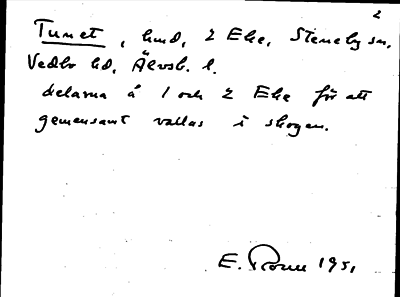 2
Tunet, hmd, 2 Eke, Steneby sn,
Vedbo hd, Älvsb. l.
delarna å 1 och 2 Eke för att
gemensamt vallas i skogen.
E. 1951